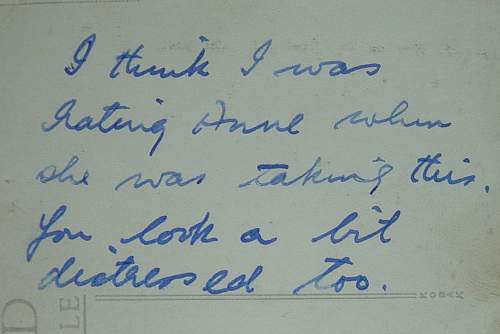 I think I was
hating Anne when
she was taking this.
You look a bit
distressed too.
KODAK
D
LE